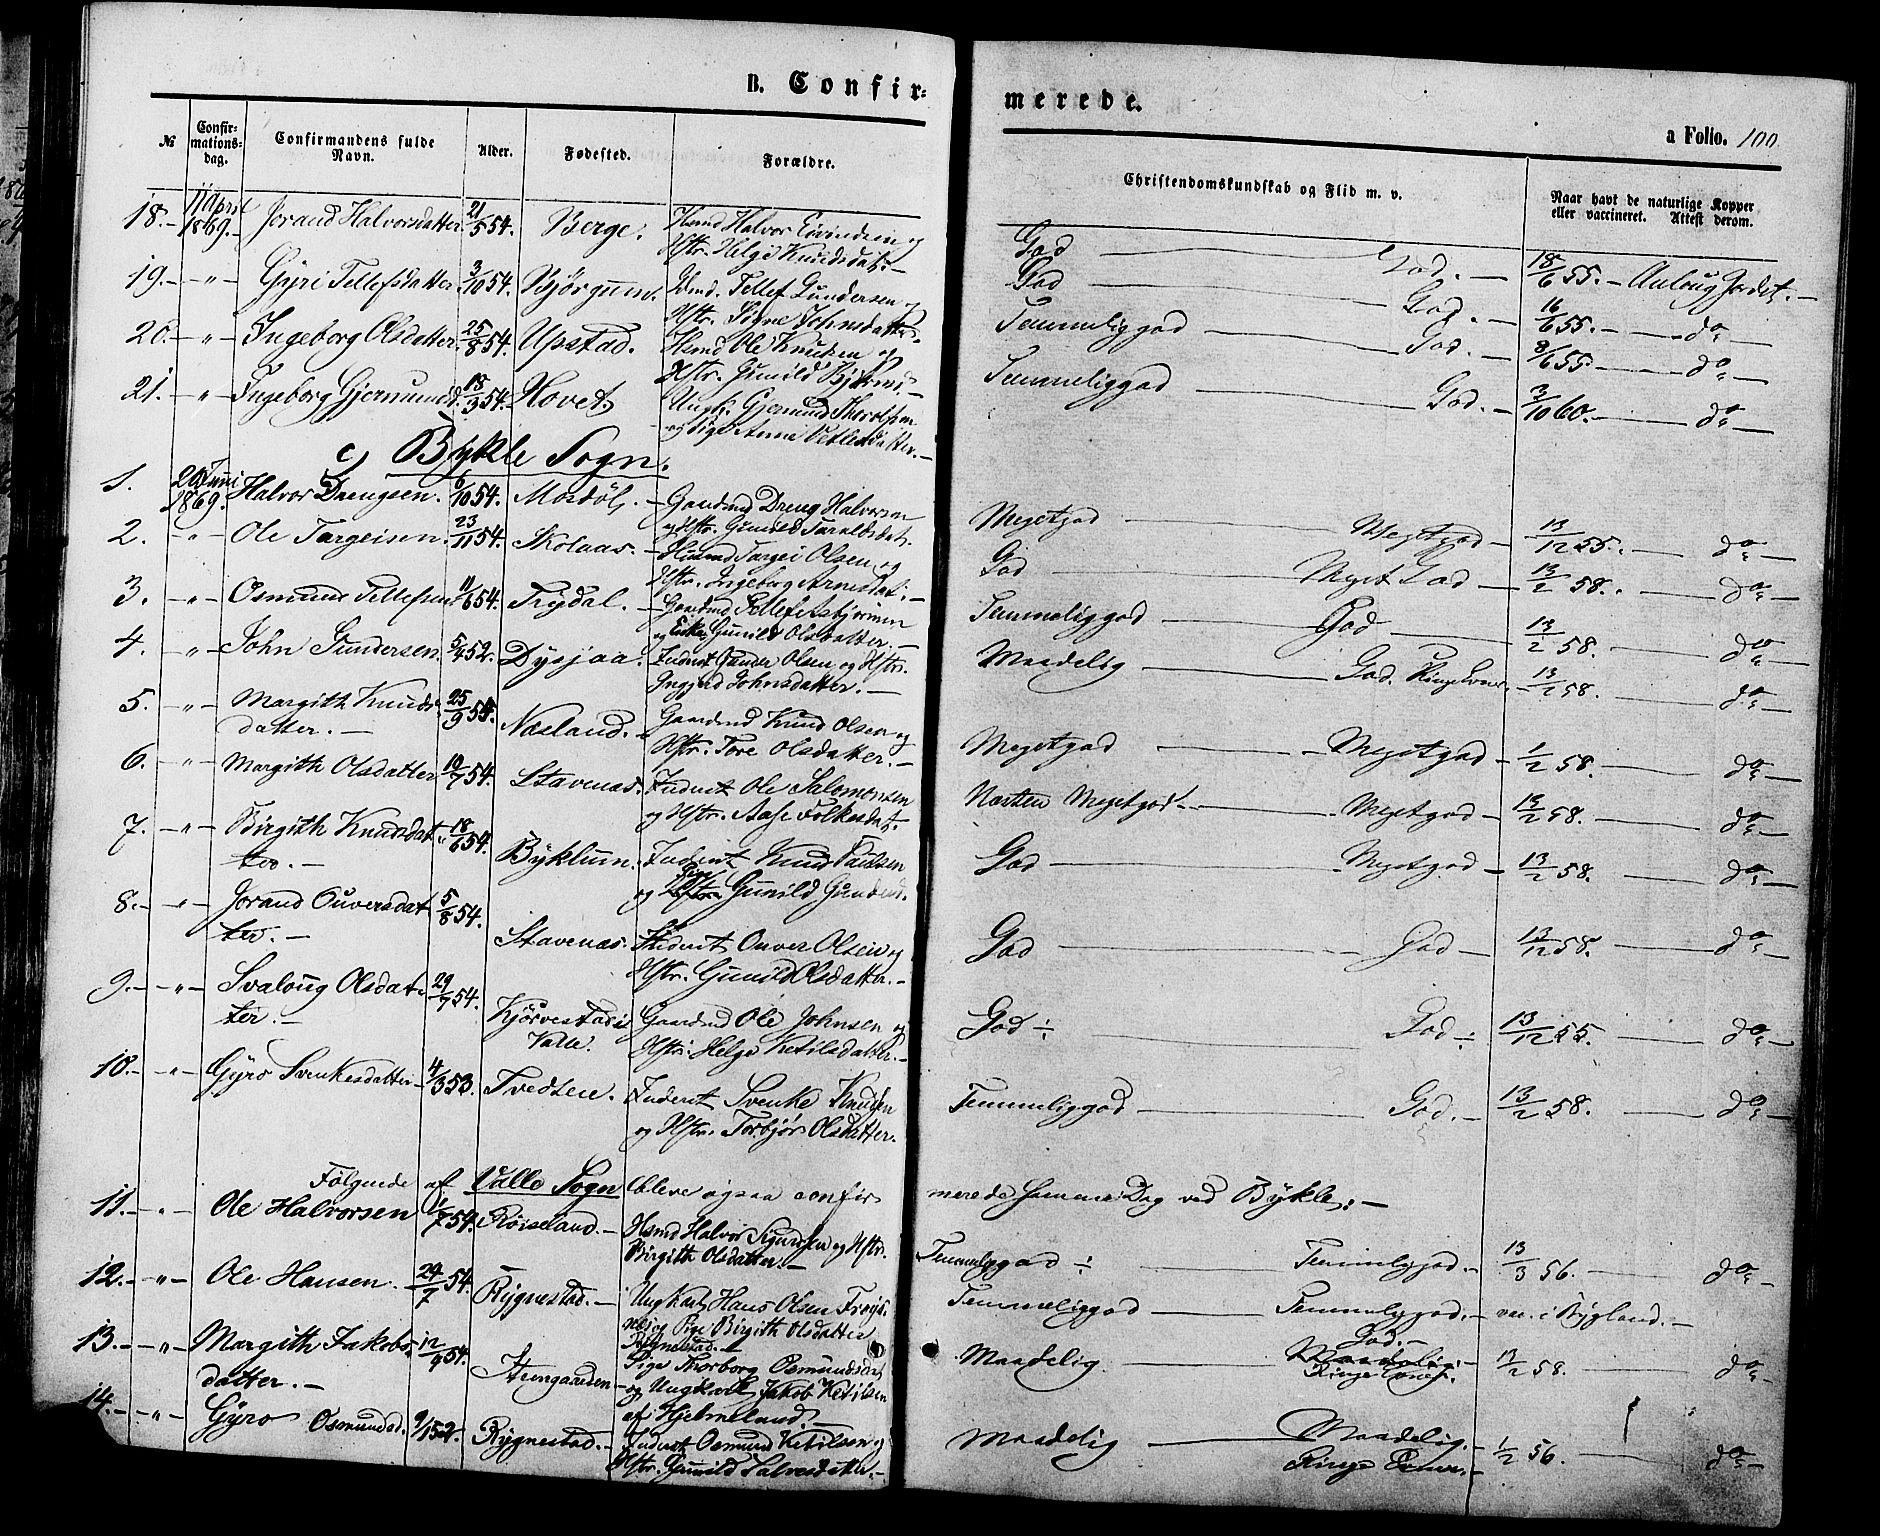 B. Confir=
№
Confir-
mations-
dag.
Confirmandens fulde
Navn.
Alder.
Fødested.
Forældre.
18.— 11 April 1869.— Jorand Halvorsdatter 21/5 54. Berge. Hsmd Halvor Eivindsen og
Hstr. Helge Knudsdat.—
19.— „ — Gyri Tellefsdatter 3/10 54. Tellef Gundersen og
Hstr. Signe Johnsdatter.
20.— „ — Ingeborg Olsdatter. 25/8 54. Upstad. Hsmd Ole Knudsen og
Hstr. Gunild Bjørnsd.—
21.— „ — Ingeborg Gjermundd. 18/3 54. Hovet. Ungk. Gjermund
og Pige Anne
c) Bykle Sogn.
1. 20 Juni 1869. Halvor Drengsen. 6/10 54. Mosdøl. — Gaardmd Dreng Halvorsen
og Hstr. Gunild Taraldsdat.
2. — „ — Ole Targeisen. 23/11 54. Skolaas. — Huusmd Targei Olsen og
Hstr. Ingeborg Arnesdat.—
3. — „ — Osmund Tellefsen 11/6 54. Trydal. — Gaardmd Tellef Asbjørnsen
og Enke Gunild Olsdatter.—
4. — „ — John Gundersen. 5/4 52. Dysjaa. Inderst Gunder Olsen og Hstr.
Ingjerd Johnsdatter.—
5. — „ — Margith Knuds-
datter.— 25/9 54. Næsland. Gaardmd Knud Olsen og
Hstr. Tore Olsdatter.—
6. — „ — Margith Olsdatter 19/7 54. Stavenæs. Inderst Ole Salomonsen
og Hstr. Aase Folkesdat.
7. — „ — Birgith Knudsdat-
ter.— 18/6 54. Byklum. Inderst Knud Paulsen
og Pige Gunild Gundersd.
8.— „ — Jorand Ouversdat-
ter.— 5/8 54. Stavenæs. Inderst Ouver Olsen og
Hstr. Gunild Olsdatter.—
9.— „ — Svaloug Olsdat-
ter.— 29/7 54. Kjørvestad i
Valle. Gaardmd Ole Johnsen og
Hstr. Helge Ketilsdatter.—
10.— „ — Gyro Svenkesdatter 4/3 53. Tvedten. Inderst Svenke Knudsen
og Hstr. Torbjør Olsdatter.
Følgende af Valle Sogn bleve ogsaa confir
11.— „ — Ole Halvorsen 1/7 54. Røiseland.— Hsmd Halvor Sigurdsen og Hstr.
Birgith Olsdatter.—
12.— „ — Ole Hansen. 24/7 54. Rygnestad.— Ungkarl Hans Olsen Frøys-
næs og Pige Birgith Olsdatter
Rygnestad.—
13.— „ — Margith Jakobs-
datter.— 12/9 54. Pige Thorborg Osmundsdat
og Ungkarl Jakob Ketilsen
af Hjelmeland.—
14.— „ — Gyro Osmundsd. 9/1 52. Rygnestad.— Inderst Osmund Ketilsen og
Hstr. Gunild Salvesdatter.—
merede.
a Folio. 100.
Christendomskundskab og Flid m. v.
Naar havt de naturlige Kopper
eller vaccineret. Attest derom.
God — God.— 18/6 55.— Aaloug Jordet.—
God — God.— 16/6 55.— do —
Temmeliggod — God.— 8/6 55.— do —
Temmeliggod — God.— 3/10 60.— do —
Megetgod — Megetgod — 13/12 55.— do —
God — Meget God — 13/2 58.— do —
Temmeliggod — God — 13/2 58. do —
Maadelig — God. Ringe Evner.— 13/2 58. do —
Megetgod — Megetgod — 1/2 58. do —
Næsten Megetgod — Megetgod — 13/2 58. do —
God — Megetgod — 13/2 58. do —
God — God — 13/12 58. do —
God ÷ — God ÷ 13/12 55. do —
Temmeliggod — God.— 13/2 58. do —
merede samme Dag ved Bykle:—
Temmeliggod ÷ — Temmeliggod.— 13/3 56. do —
Temmeliggod — Temmeliggod.— vac. i Bygland.—
Maadelig — God.—
Maadelig.
Ringe Evner. 13/2 58. do —
Maadelig — Maadelig.—
Ringe Evner.— 1/2 56. do —